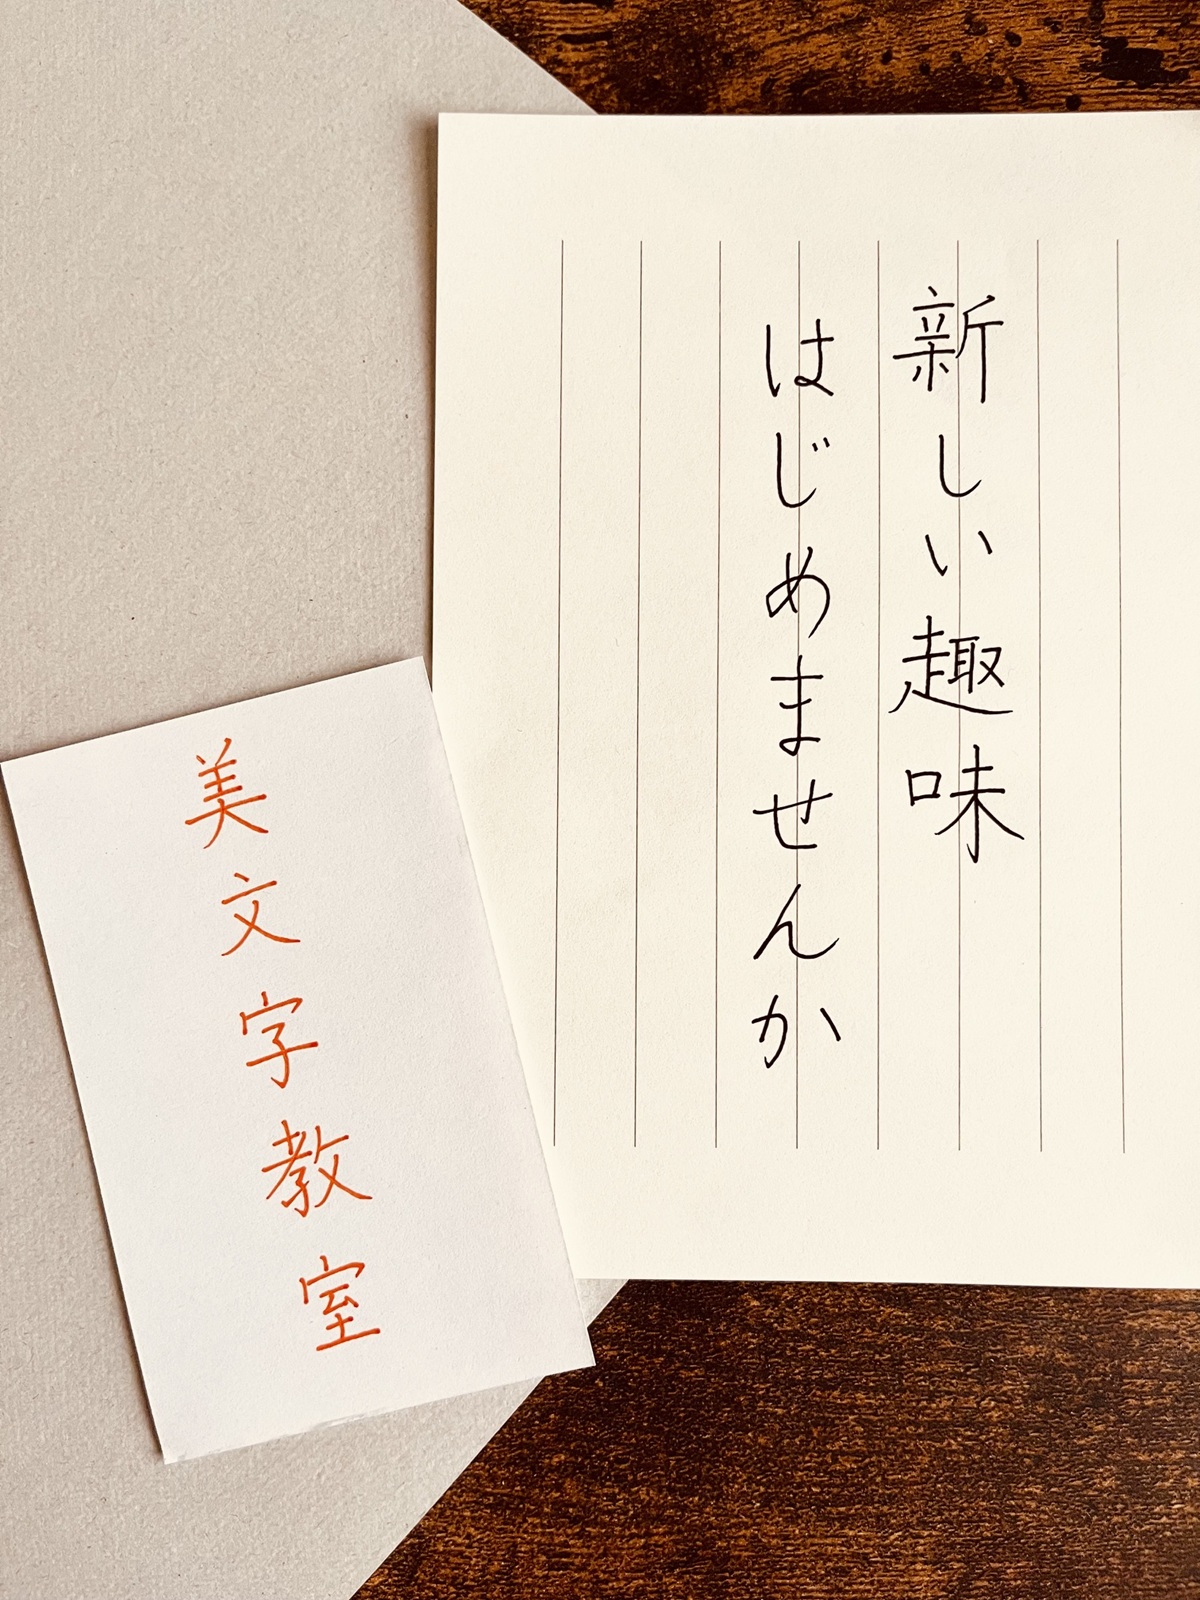 新しい趣味
はじめませんか
美文字教室